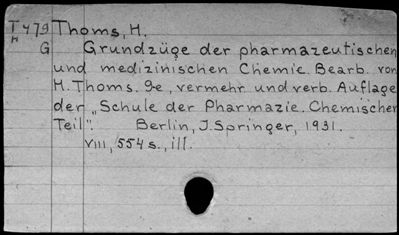 T479 Thoms, H.
H
G Grundzüge der pharmazeutischen
und medizinischen Chemie. Bearb. von
H. Thoms. 9e, vermehr und verb. Auflage
der „Schule der Pharmazie. Chemischer
Teil". Berlin, J. Springer, 1931.
VIII, 554 s., ill.